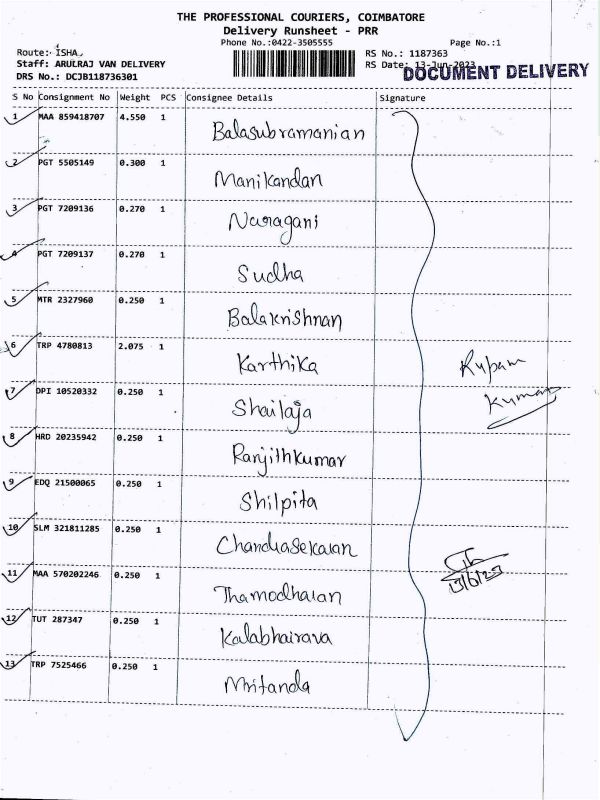 THE PROFESSIONAL COURIERS, COIMBATORE
Delivery Runsheet - PRR
Phone No.:0422-3505555 Page No.:1
Route: ISHA RS No.: 1187363
Staff: ARULRAJ VAN DELIVERY RS Date: 13-Jun-2023
DRS No.: DCJB118736301 DOCUMENT DELIVERY
S No Consignment No Weight PCS Consignee Details Signature
1 MAA 859418707 4.550 1 Balasubramanian
2 PGT 5505149 0.300 1 Manikandan
3 PGT 7209136 0.270 1 Naragani
4 PGT 7209137 0.270 1 Sudha
5 MTR 2327960 0.250 1 Balakrishnan
6 TRP 4780813 2.075 1 Karthika
Rupam
7 DPI 10520332 0.250 1 Shailaja
Kumar
8 HRD 20235942 0.250 1 Ranjithkumar
9 EDQ 21500065 0.250 1 Shilpita
10 SLM 321811285 0.250 1 Chandrasekaran
11 MAA 570202246 0.250 1 Thamodharan
13/6/23
12 TUT 287347 0.250 1 Kalabhairava
13 TRP 7525466 0.250 1 Mritanda